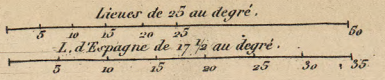 Lieues de 25 au degré.
5 10 15 20 25 50
L. d'Espagne de 17 1/2 au degré.
5 10 15 20 25 30 35